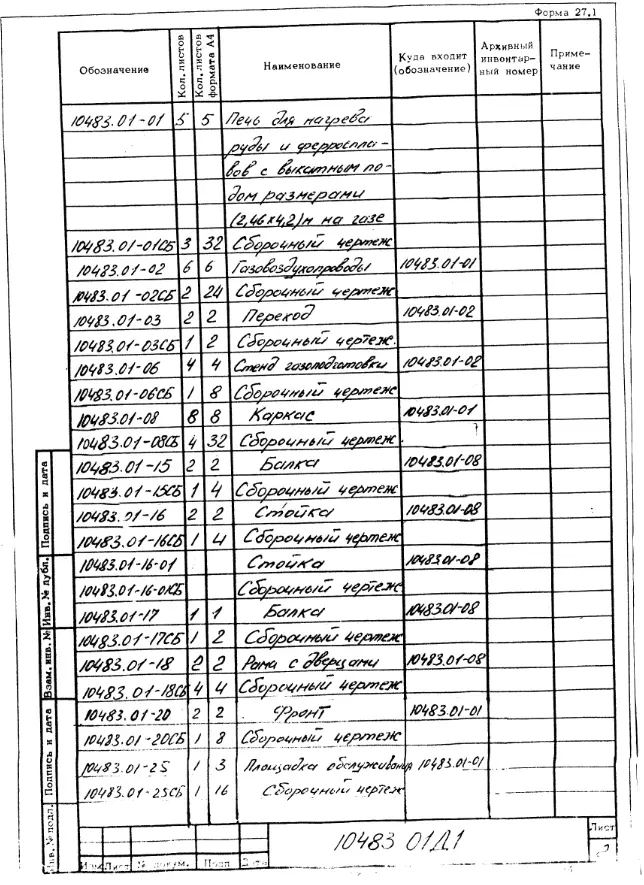 Форма 27.1
Обозначение Кол. листов Кол. листов формата А4 Наименование Куда входит (обозначение) Архивный инвентар- ный номер Приме- чание
10483.01-01 5 5 Печь для нагрева
руды и ферроспла-
вов с выкатным по-
дом размерами
(2,46х4,2)м на газе
10483.01-01СБ 3 32 Сборочный чертеж
10483.01-02 6 6 Газовоздухопроводы 10483.01-01
10483.01-02СБ 2 24 Сборочный чертеж
10483.01-03 2 2 Переход 10483.01-02
10483.01-03СБ 1 2 Сборочный чертеж.
10483.01-06 4 4 Стенд газоподготовки 10483.01-02
10483.01-06СБ 1 8 Сборочный чертеж
10483.01-08 8 8 Каркас 10483.01-01
10483.01-08СБ 4 32 Сборочный чертеж
10483.01-15 2 2 Балка 10483.01-08
10483.01-15СБ 1 4 Сборочный чертеж
10483.01-16 2 2 Стойка 10483.01-08
10483.01-16СБ 1 4 Сборочный чертеж
10483.01-16-01 Стойка 10483.01-08
10483.01-16-01СБ Сборочный чертеж
10483.01-17 1 1 Балка 10483.01-08
10483.01-17СБ 1 2 Сборочный чертеж
10483.01-18 2 2 Рама с дверцами 10483.01-08
10483.01-18СБ 4 4 Сборочный чертеж
10483.01-20 2 2 Фронт 10483.01-01
10483.01-20СБ 1 8 Сборочный чертеж
10483.01-25 1 3 Площадка обслуживания 10483.01-01
10483.01-25СБ 1 16 Сборочный чертеж
Подпись и дата
Инв. № дубл.
Взам. инв. №
Подпись и дата
Инв. № подл.
10483 01Д1
Лист
2
Изм Лист № докум. Подп Дата